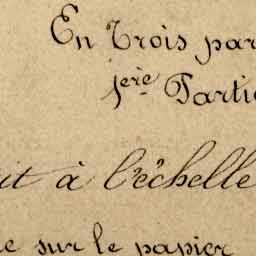 En Trois par
1ère Partie
it à l'échelle
e sur le papier